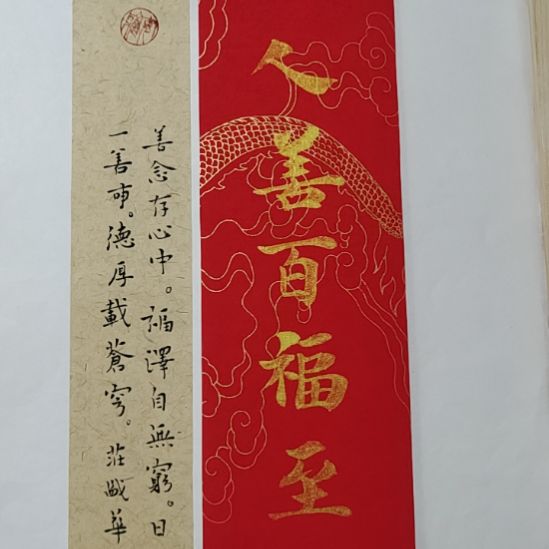 人善百福至
善念存心中。福澤自無窮。日
一善申。德厚載蒼穹。莊
華